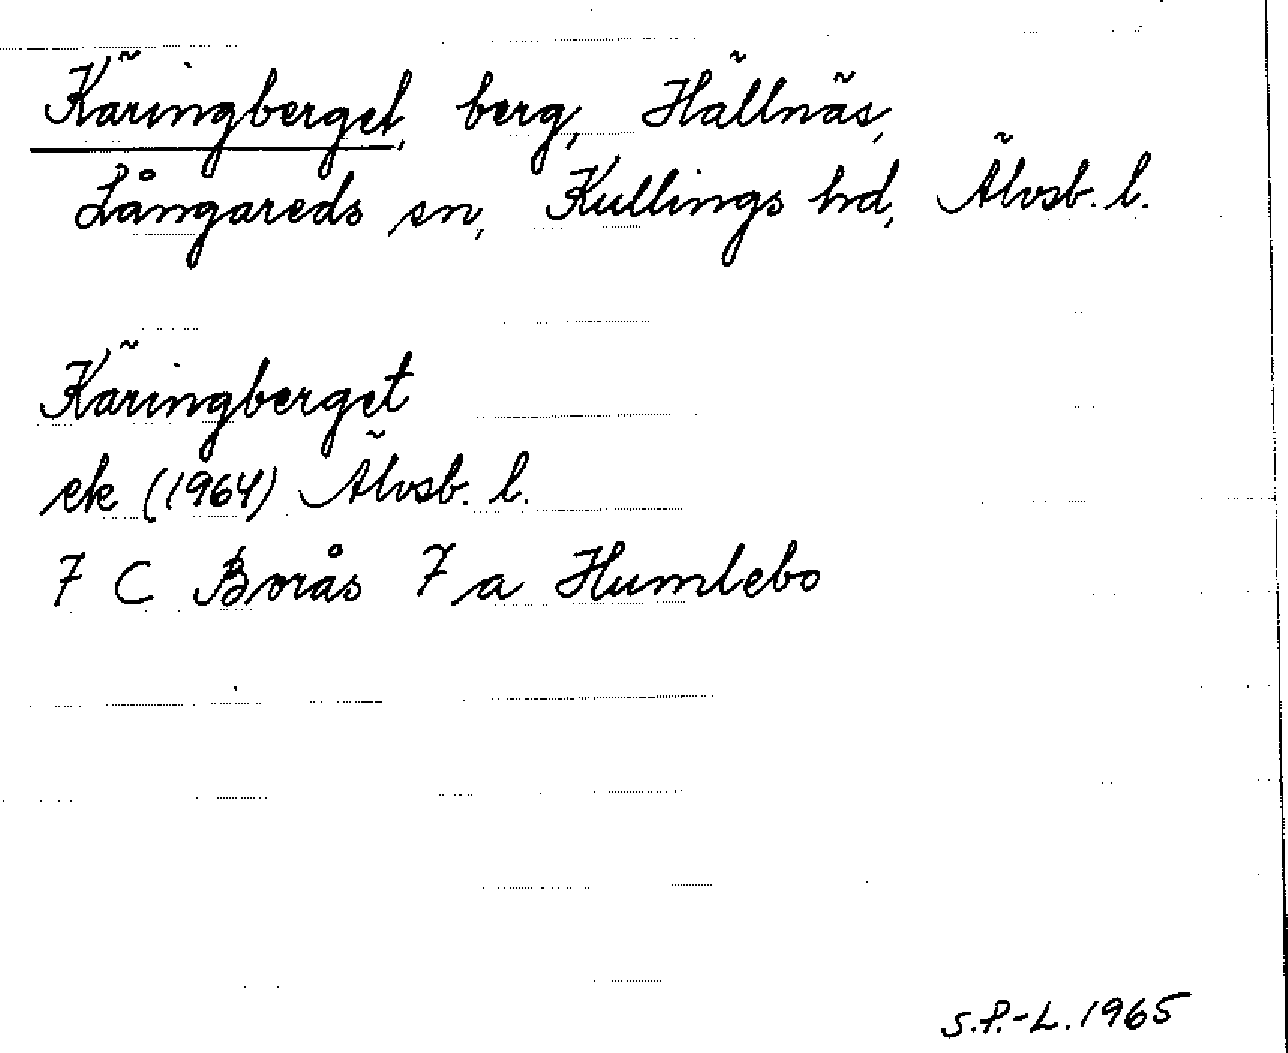 Käringberget, berg, Hällnäs,
Långareds sn, Kullings hd, Älvsb. l.
Käringberget
ek (1964) Älvsb. l.
7 C Borås 7 a Humlebo
S.P.-L. 1965